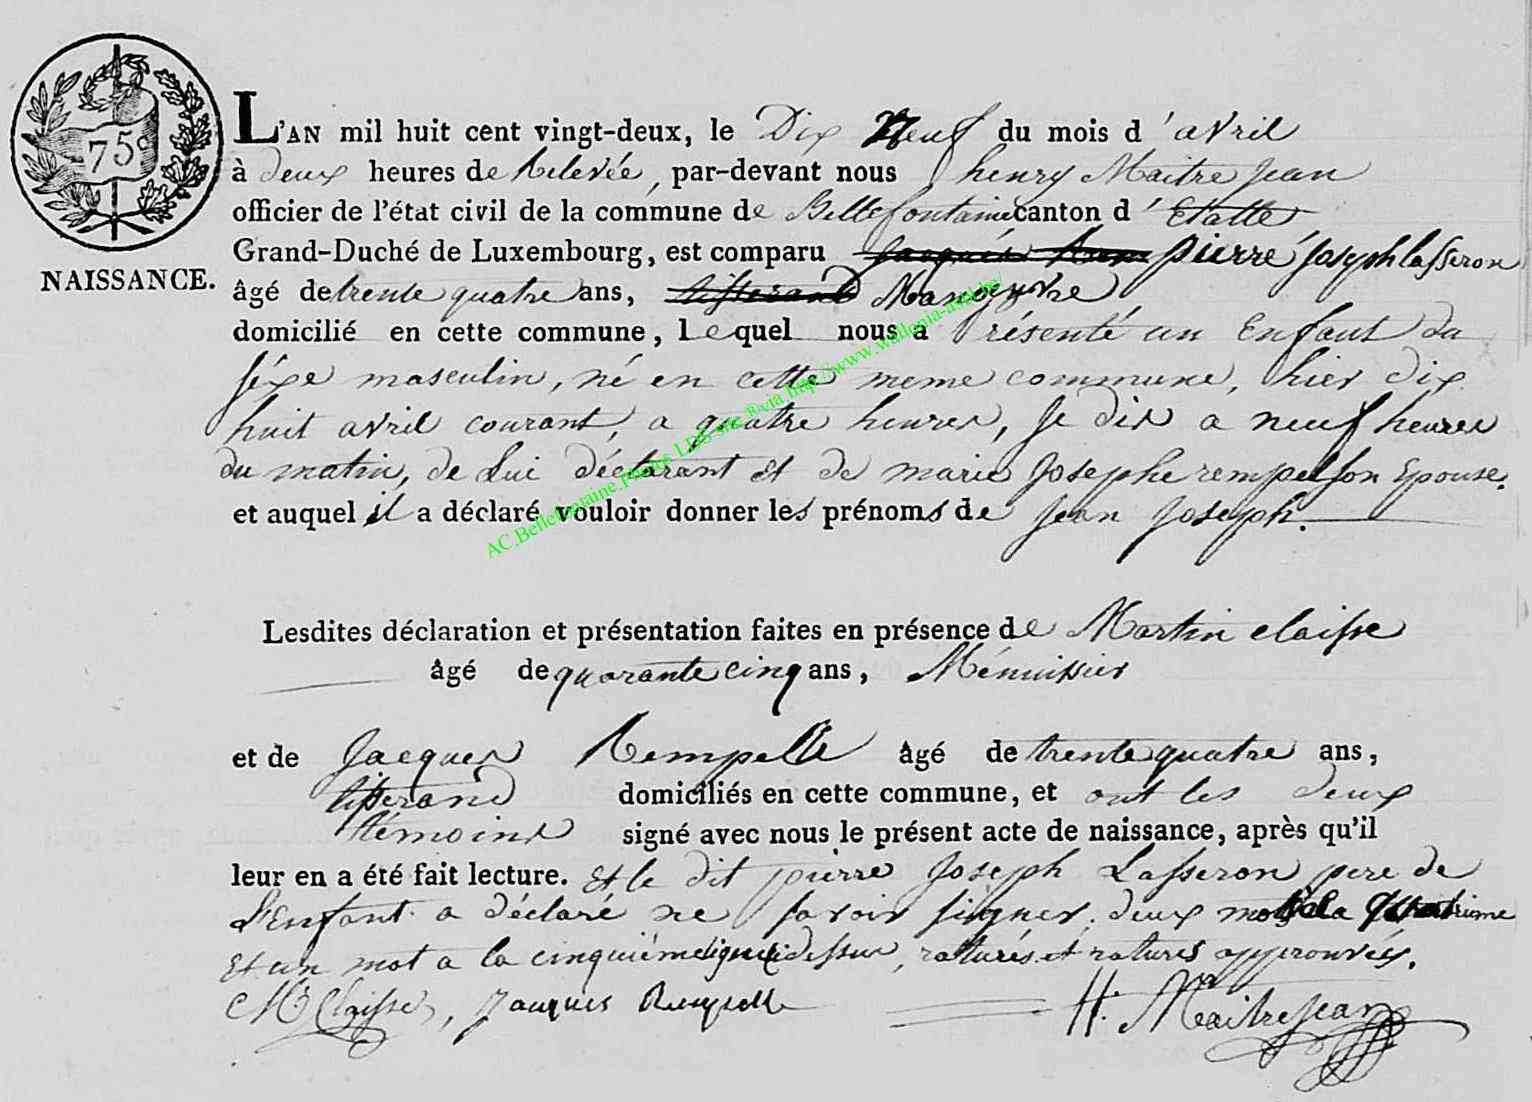 75c
NAISSANCE.
L'AN mil huit cent vingt-deux, le Dix Neuf du mois d'avril
à deux heures de Relevée, par-devant nous henry Maitre Jean
officier de l'état civil de la commune de Bellefontaine canton d'Etalle
Grand-Duché de Luxembourg, est comparu Jacques Rem pierre Joseph Lasseron
âgé de trente quatre ans, tisserand Manoeuvre
domicilié en cette commune, Lequel nous a résenté un Enfant du
séxe masculin, né en cette meme commune, hier dix
huit avril courant, a quatre heures, Je dis a neuf heures
du matin, de Lui déclarant et de marie Josephe rempelson Epouse.
et auquel il a déclaré vouloir donner les prénoms de Jean Joseph.
Lesdites déclaration et présentation faites en présence de Martin claisse
âgé de quarante cinq ans, Ménuissier
et de Jacques Rempelle âgé de trente quatre ans,
tisserand domiciliés en cette commune, et ont les deux
témoins signé avec nous le présent acte de naissance, après qu'il
leur en a été fait lecture. Et le dit pierre Joseph Lasseron pere de
L'Enfant a déclaré ne savoir signer. deux mots a la quatrieme
Et un mot a la cinquième ligne cidessus, raturés et ratures approuvées.
M Claisse, Jacques Rempelle H. Maitrejean
AC.Bellefontaine, http://www.wallonia-asbl.be/